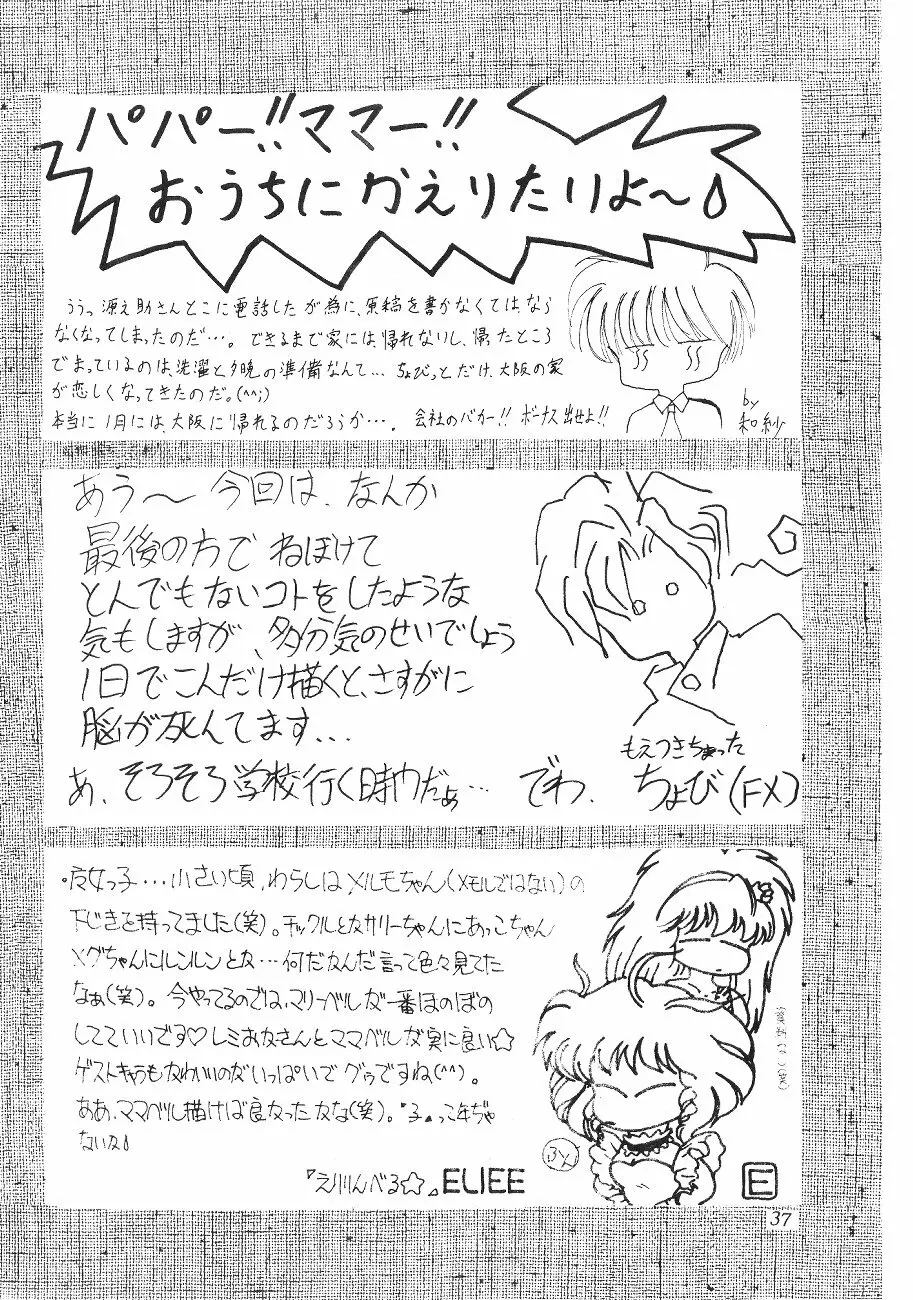 パパー!!ママー!!
おうちにかえりたいよ〜
ううっ源之助さんとこに電話したが為に、原稿を書かなくてはなら
なくなってしまったのだ…。できるまで家には帰れないし、帰ったところ
でまっているのは、洗濯と夕晩の準備なんて… ちょびっとだけ、大阪の家
が恋しくなってきたのだ。(^^;)
本当に1月には、大阪に帰れるのだろうか…。 会社のバカー!! ボーナス出せよ!!
by
和紗
あう〜 今回は、なんか
最後の方で ねぼけて
とんでもないコトをしたような
気もしますが、多分気のせいでしょう
1日でこんだけ描くと、さすがに
脳が死んでます…
あ、そろそろ学校行く時間だぁ… でわ、
もえつきちゃった
ちょび(FX)
・魔女っ子…小さい頃、わらしはメルモちゃん(メモルではない)の
下じきを持ってました(笑)。チックルとかサリーちゃんにあっこちゃん
メグちゃんにルンルンとか…何だかんだ言って色々見てた
なぁ(笑)。今やってるのでは、マリーベルが一番ほのぼの
してていいです♡レミおかさんとママベルが実に良い☆
ゲストキャラもかわいいのがいっぱいでグゥですね(^^)。
ああ、ママベル描けば良かったかな(笑)。"子"って年ぢゃ
ないな
『えりりんべる☆』ELIEE
BY
E
37